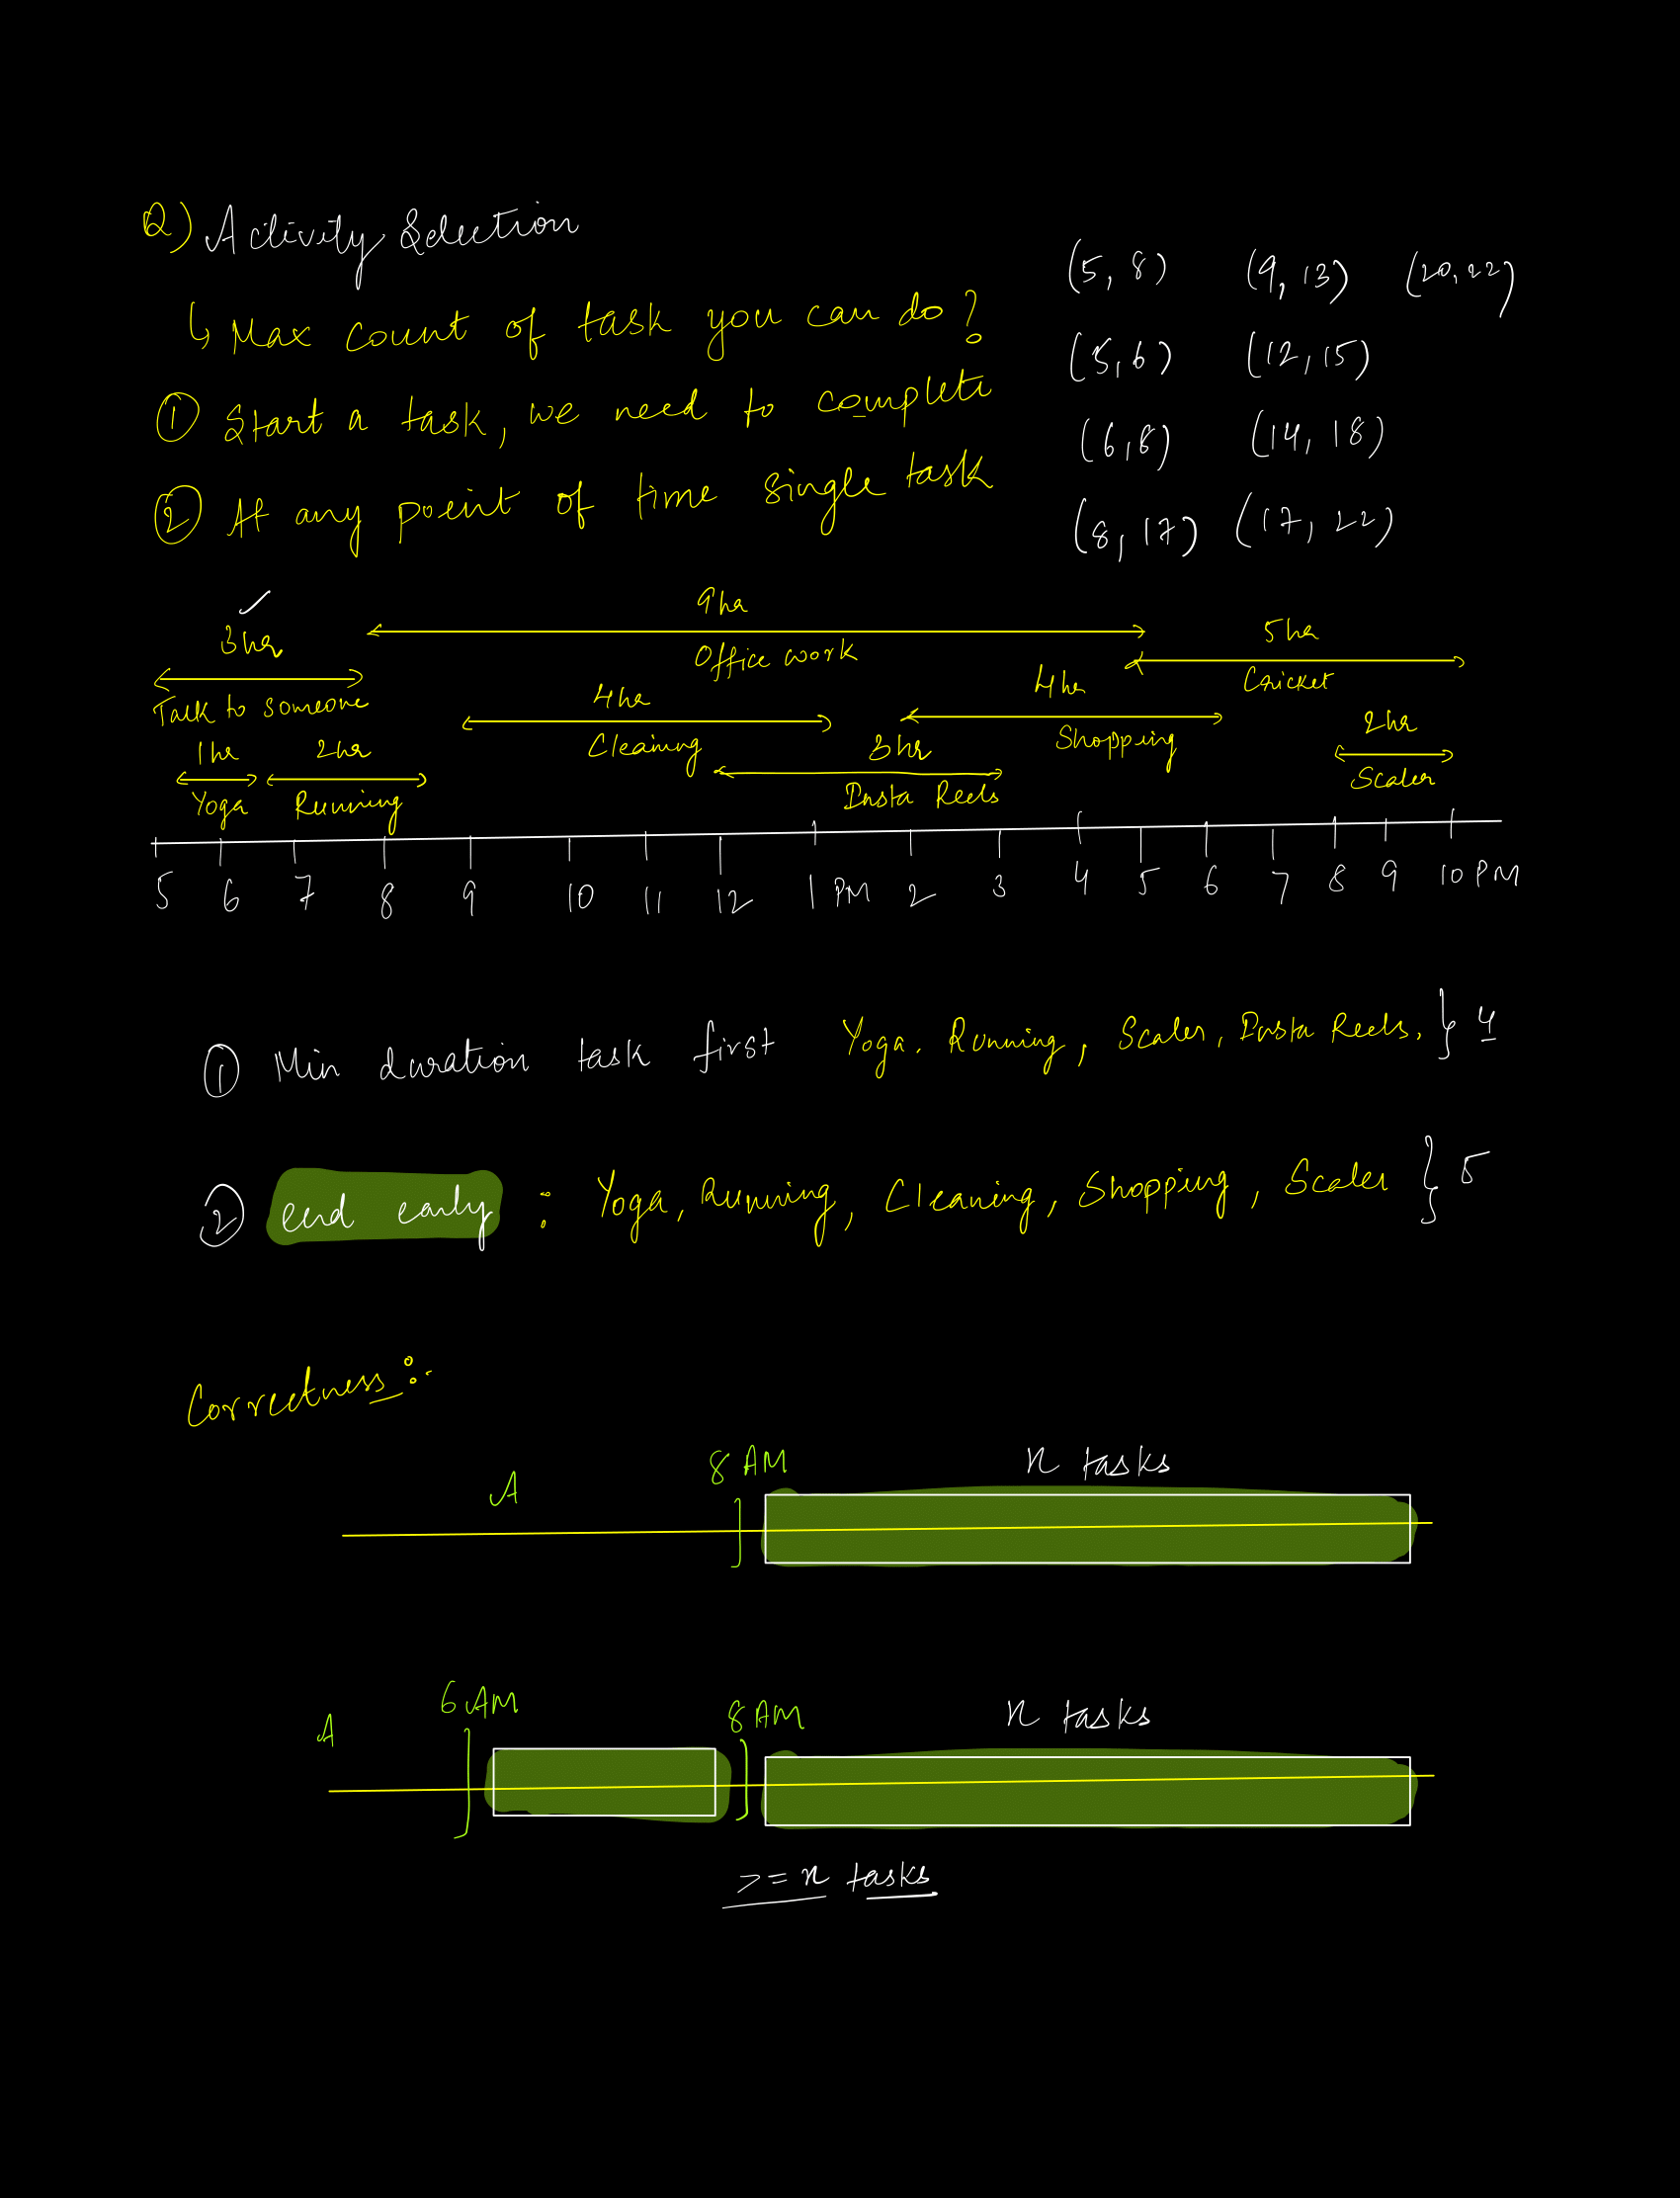 Q) Activity Selection
↳ Max count of task you can do?
① Start a task, we need to complete
② At any point of time single task
(5, 8) (9, 13) (20, 22)
(5, 6) (12, 15)
(6, 8) (14, 18)
(8, 17) (17, 22)
9hr
Office work
3hr
Talk to someone
5hr
Cricket
4hr
Cleaning
4hr
Shopping
1hr
Yoga
2hr
Running
3hr
Insta Reels
2hr
Scaler
5 6 7 8 9 10 11 12 1 PM 2 3 4 5 6 7 8 9 10 PM
① Min duration task first Yoga. Running, Scaler, Insta Reels. } 4
② end early : Yoga, Running, Cleaning, Shopping, Scaler } 5
Correctness :-
A 8 AM n tasks
A 6 AM 8 AM n tasks
>= n tasks